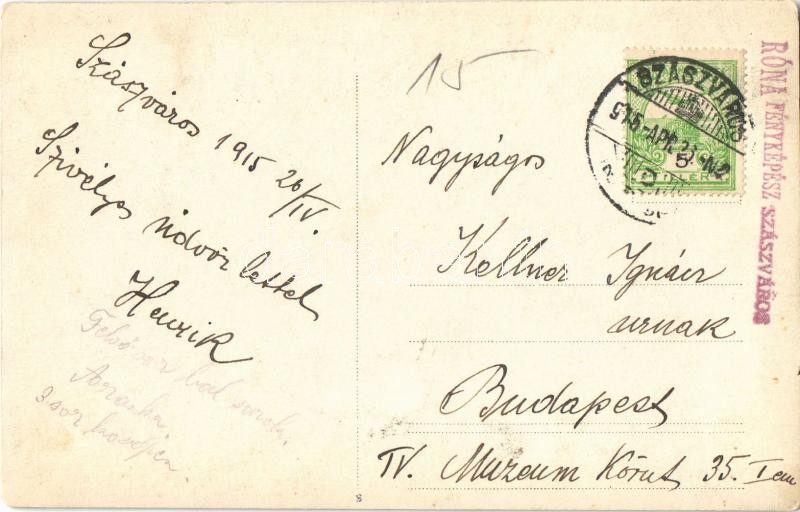 Szászváros 1915 26/IV.
Szivélyes üdvözlettel
Henrik
Felső sor bal sarok.
Aranka
3 sor középen.
15
Nagyságos
Kellner Ignácz
urnak
Budapest
IV. Muzeum Körut 35. I em
SZÁSZVÁROS
915 APR. 27
RÓNA FÉNYKÉPÉSZ SZÁSZVÁROS
8